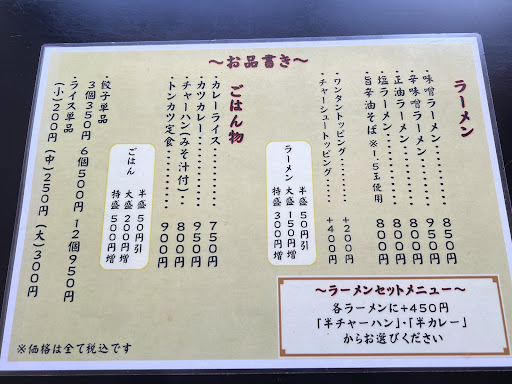 ～お品書き～
ラーメン
味噌ラーメン………８５０円
辛味噌ラーメン………９５０円
正油ラーメン………８００円
塩ラーメン………８００円
旨辛油そば※１.５玉使用 ８００円
・ワンタントッピング………＋２００円
・チャーシュートッピング………＋４００円
ラーメン
半盛 ５０円引
大盛 １５０円増
特盛 ３００円増
ごはん物
・カレーライス………７５０円
・カツカレー………９５０円
・チャーハン(みそ汁付)…８００円
・トンカツ定食………９００円
ごはん
半盛 ５０円引
大盛 ２００円増
特盛 ５００円増
・餃子単品
３個３５０円 ６個５００円 １２個９５０円
・ライス単品
(小)２００円 (中)２５０円 (大)３００円
～ラーメンセットメニュー～
各ラーメンに+450円
「半チャーハン」・「半カレー」
からお選びください
※価格は全て税込です